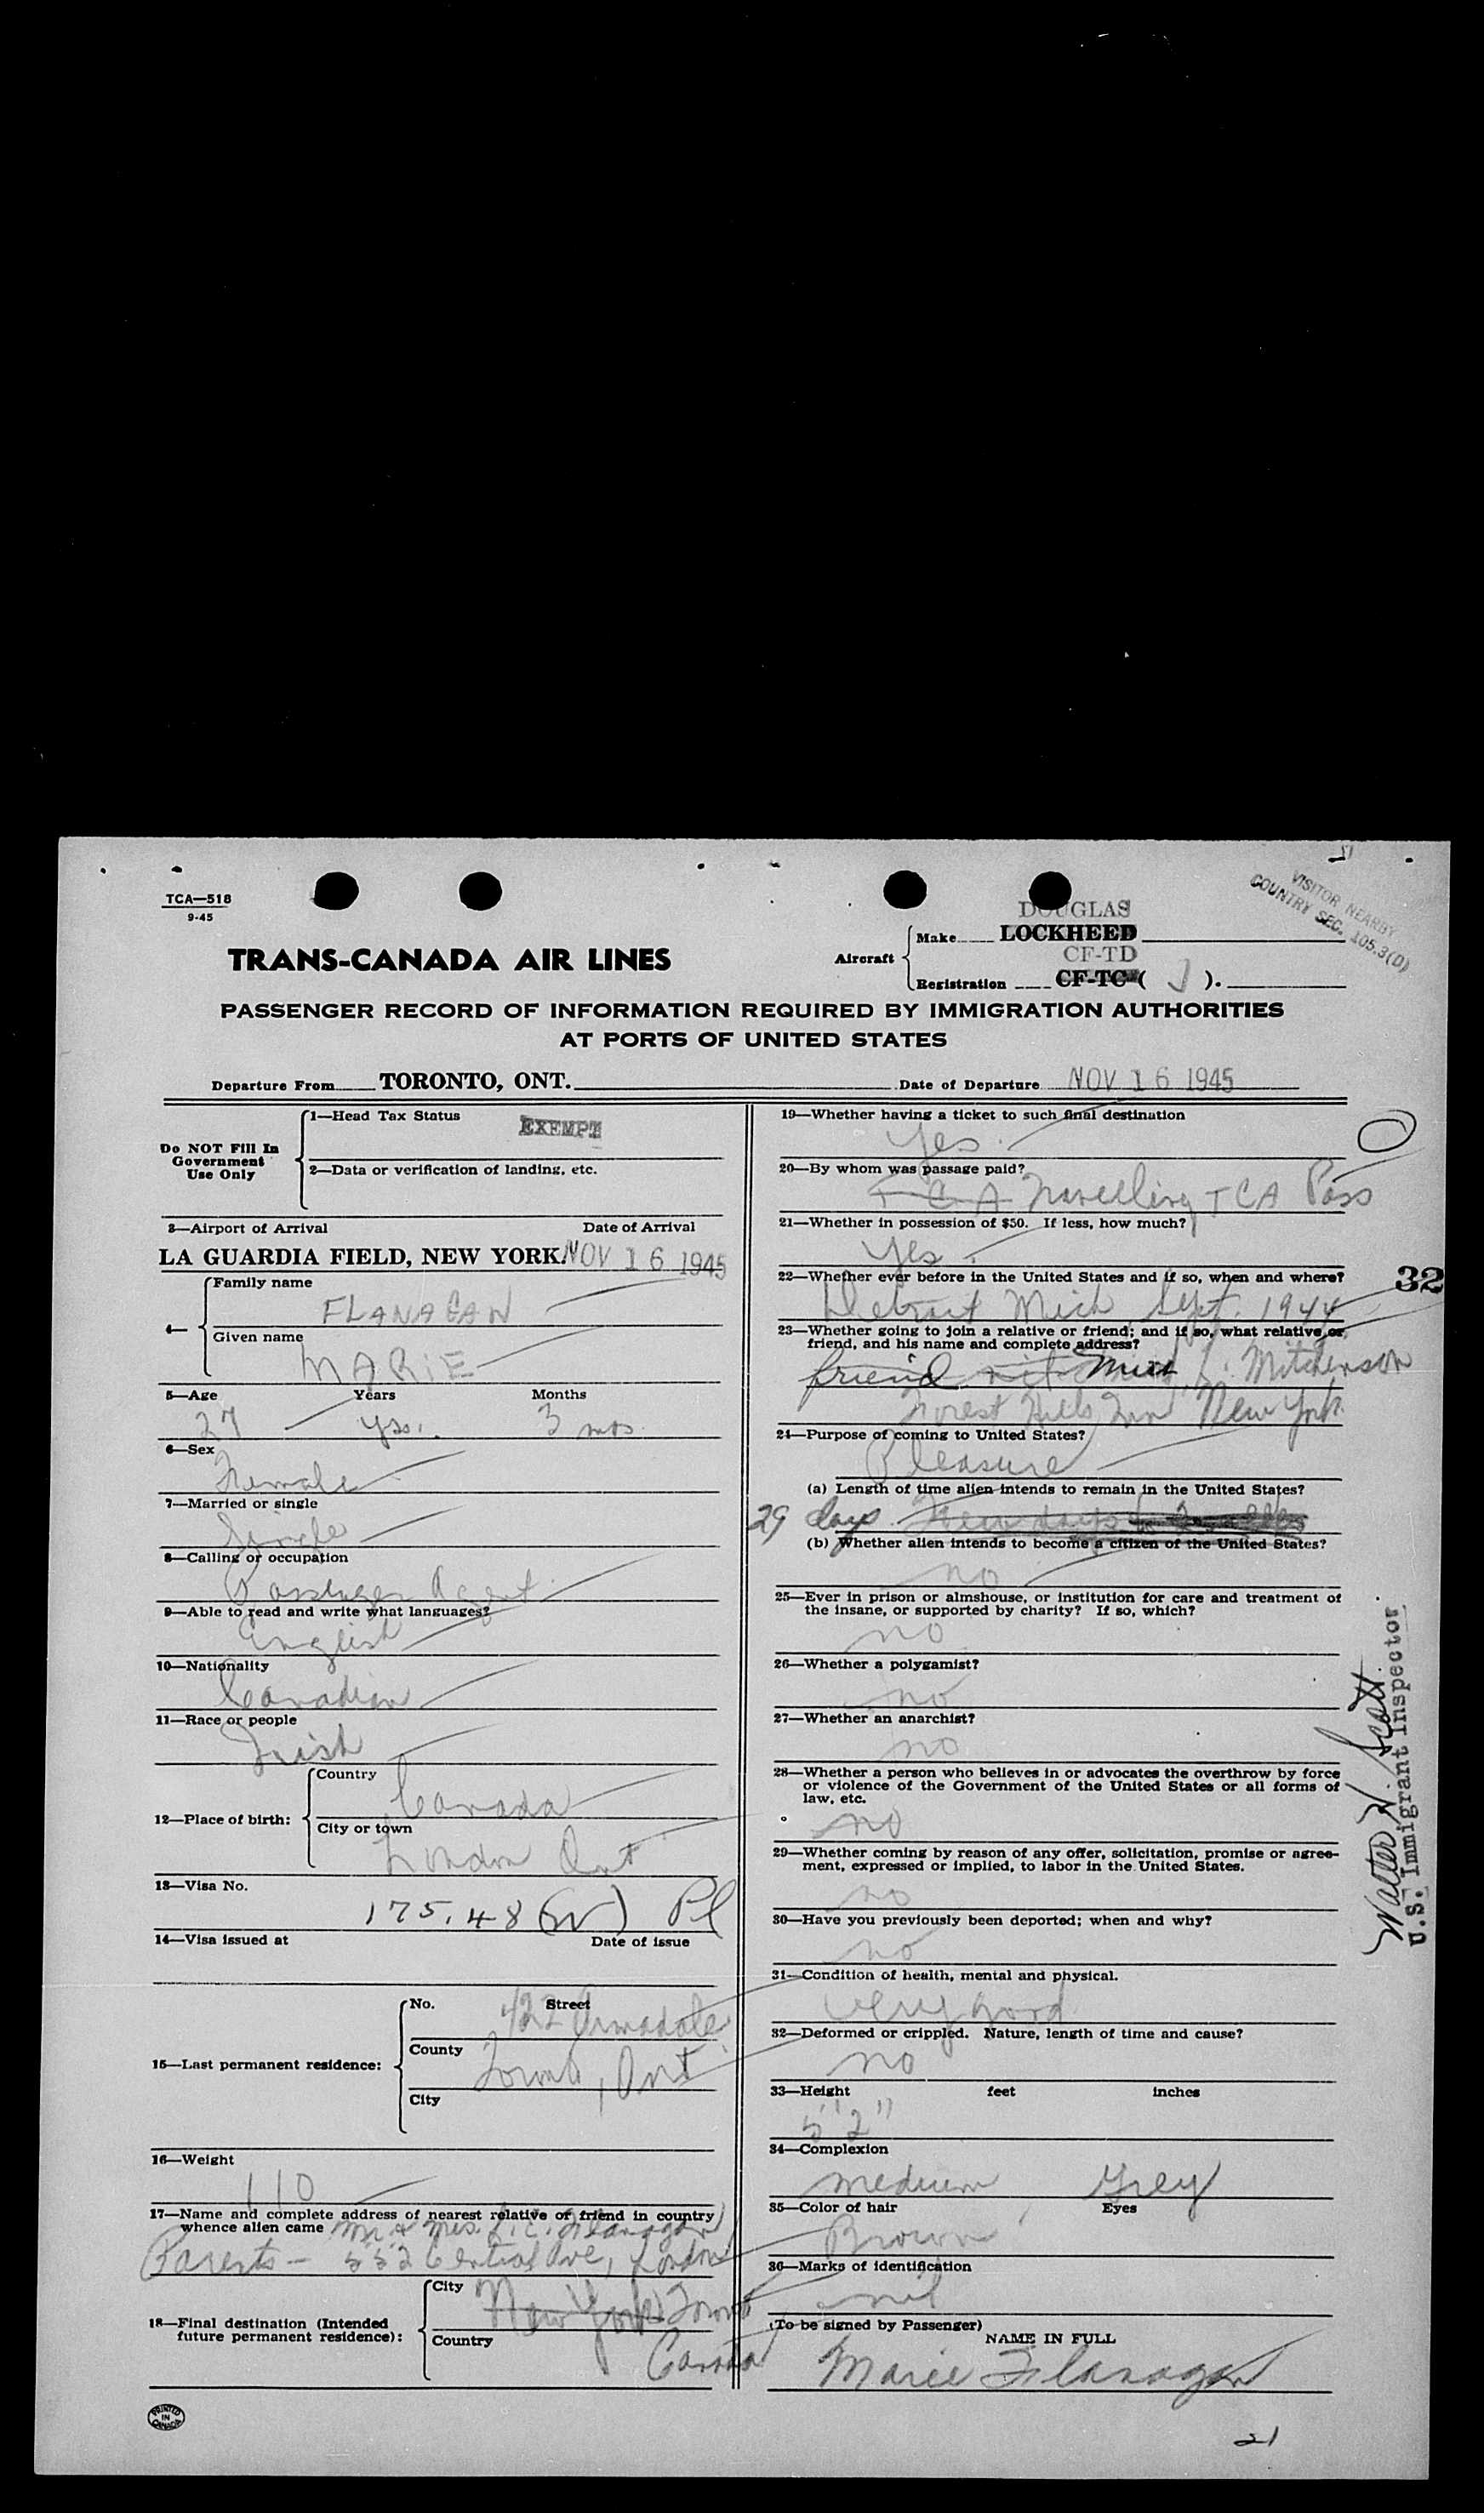 VISITOR NEARBY
COUNTRY SEC. 105.3(D)
TCA—518
9-45
TRANS-CANADA AIR LINES
DOUGLAS
Aircraft
Make LOCKHEED
CF-TD
Registration CF-TC ( J ).
PASSENGER RECORD OF INFORMATION REQUIRED BY IMMIGRATION AUTHORITIES
AT PORTS OF UNITED STATES
Departure From TORONTO, ONT. Date of Departure NOV 16 1945
Do NOT Fill In
Government
Use Only
1—Head Tax Status EXEMPT
2—Data or verification of landing, etc.
3—Airport of Arrival Date of Arrival
LA GUARDIA FIELD, NEW YORK. NOV 16 1945
4—
Family name
FLANAGAN
Given name
MARIE
5—Age Years Months
27 yrs. 3 mos.
6—Sex
Female
7—Married or single
Single
8—Calling or occupation
Passenger Agent
9—Able to read and write what languages?
English
10—Nationality
Canadian
11—Race or people
Irish
12—Place of birth:
Country
Canada
City or town
London Ont
13—Visa No.
175.48 (W) Pl
14—Visa issued at Date of issue
15—Last permanent residence:
No. Street
422 Armadale
County
Toronto, Ont.
City
16—Weight
110
17—Name and complete address of nearest relative or friend in country
whence alien came Mr & Mrs. Flanagan
Parents — 552 Central Ave, London
18—Final destination (Intended
future permanent residence):
City
New York Toronto
Country
Canada
PRINTED
IN
CANADA
19—Whether having a ticket to such final destination
Yes.
20—By whom was passage paid?
T C A Travelling TCA Pass
21—Whether in possession of $50. If less, how much?
Yes.
22—Whether ever before in the United States and if so, when and where?
Detroit Mich Sept. 1944
32
23—Whether going to join a relative or friend; and if so, what relative or
friend, and his name and complete address?
friend Miss L. Mitchenson
Forest Hills Inn New York
24—Purpose of coming to United States?
Pleasure
(a) Length of time alien intends to remain in the United States?
29 days. Few days to
(b) Whether alien intends to become a citizen of the United States?
no
25—Ever in prison or almshouse, or institution for care and treatment of
the insane, or supported by charity? If so, which?
no
26—Whether a polygamist?
no
27—Whether an anarchist?
no
28—Whether a person who believes in or advocates the overthrow by force
or violence of the Government of the United States or all forms of
law, etc.
no
29—Whether coming by reason of any offer, solicitation, promise or agree-
ment, expressed or implied, to labor in the United States.
no
30—Have you previously been deported; when and why?
no
31—Condition of health, mental and physical.
very good
32—Deformed or crippled. Nature, length of time and cause?
no
33—Height feet inches
5'2"
34—Complexion
medium Grey
35—Color of hair Eyes
Brown
36—Marks of identification
nil
(To be signed by Passenger)
NAME IN FULL
Marie Flanagan
21
Walter H. Scott
U.S. Immigrant Inspector.